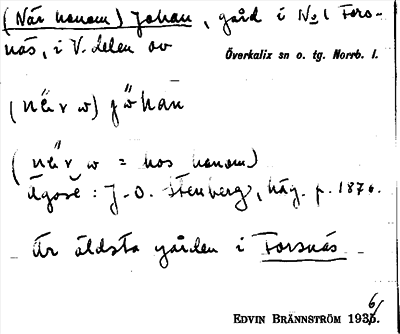 (När honom) Johan, gård i No 1 Fors-
näs, i V. delen av
Överkalix sn o. tg. Norrb. l.
(nä́r w) jőhan
(nä́r w = hos honom)
Ägare : J. O. Stenberg, häg. f. 1876.
Är äldsta gården i Forsnäs
EDVIN BRÄNNSTRÖM 1936/5.